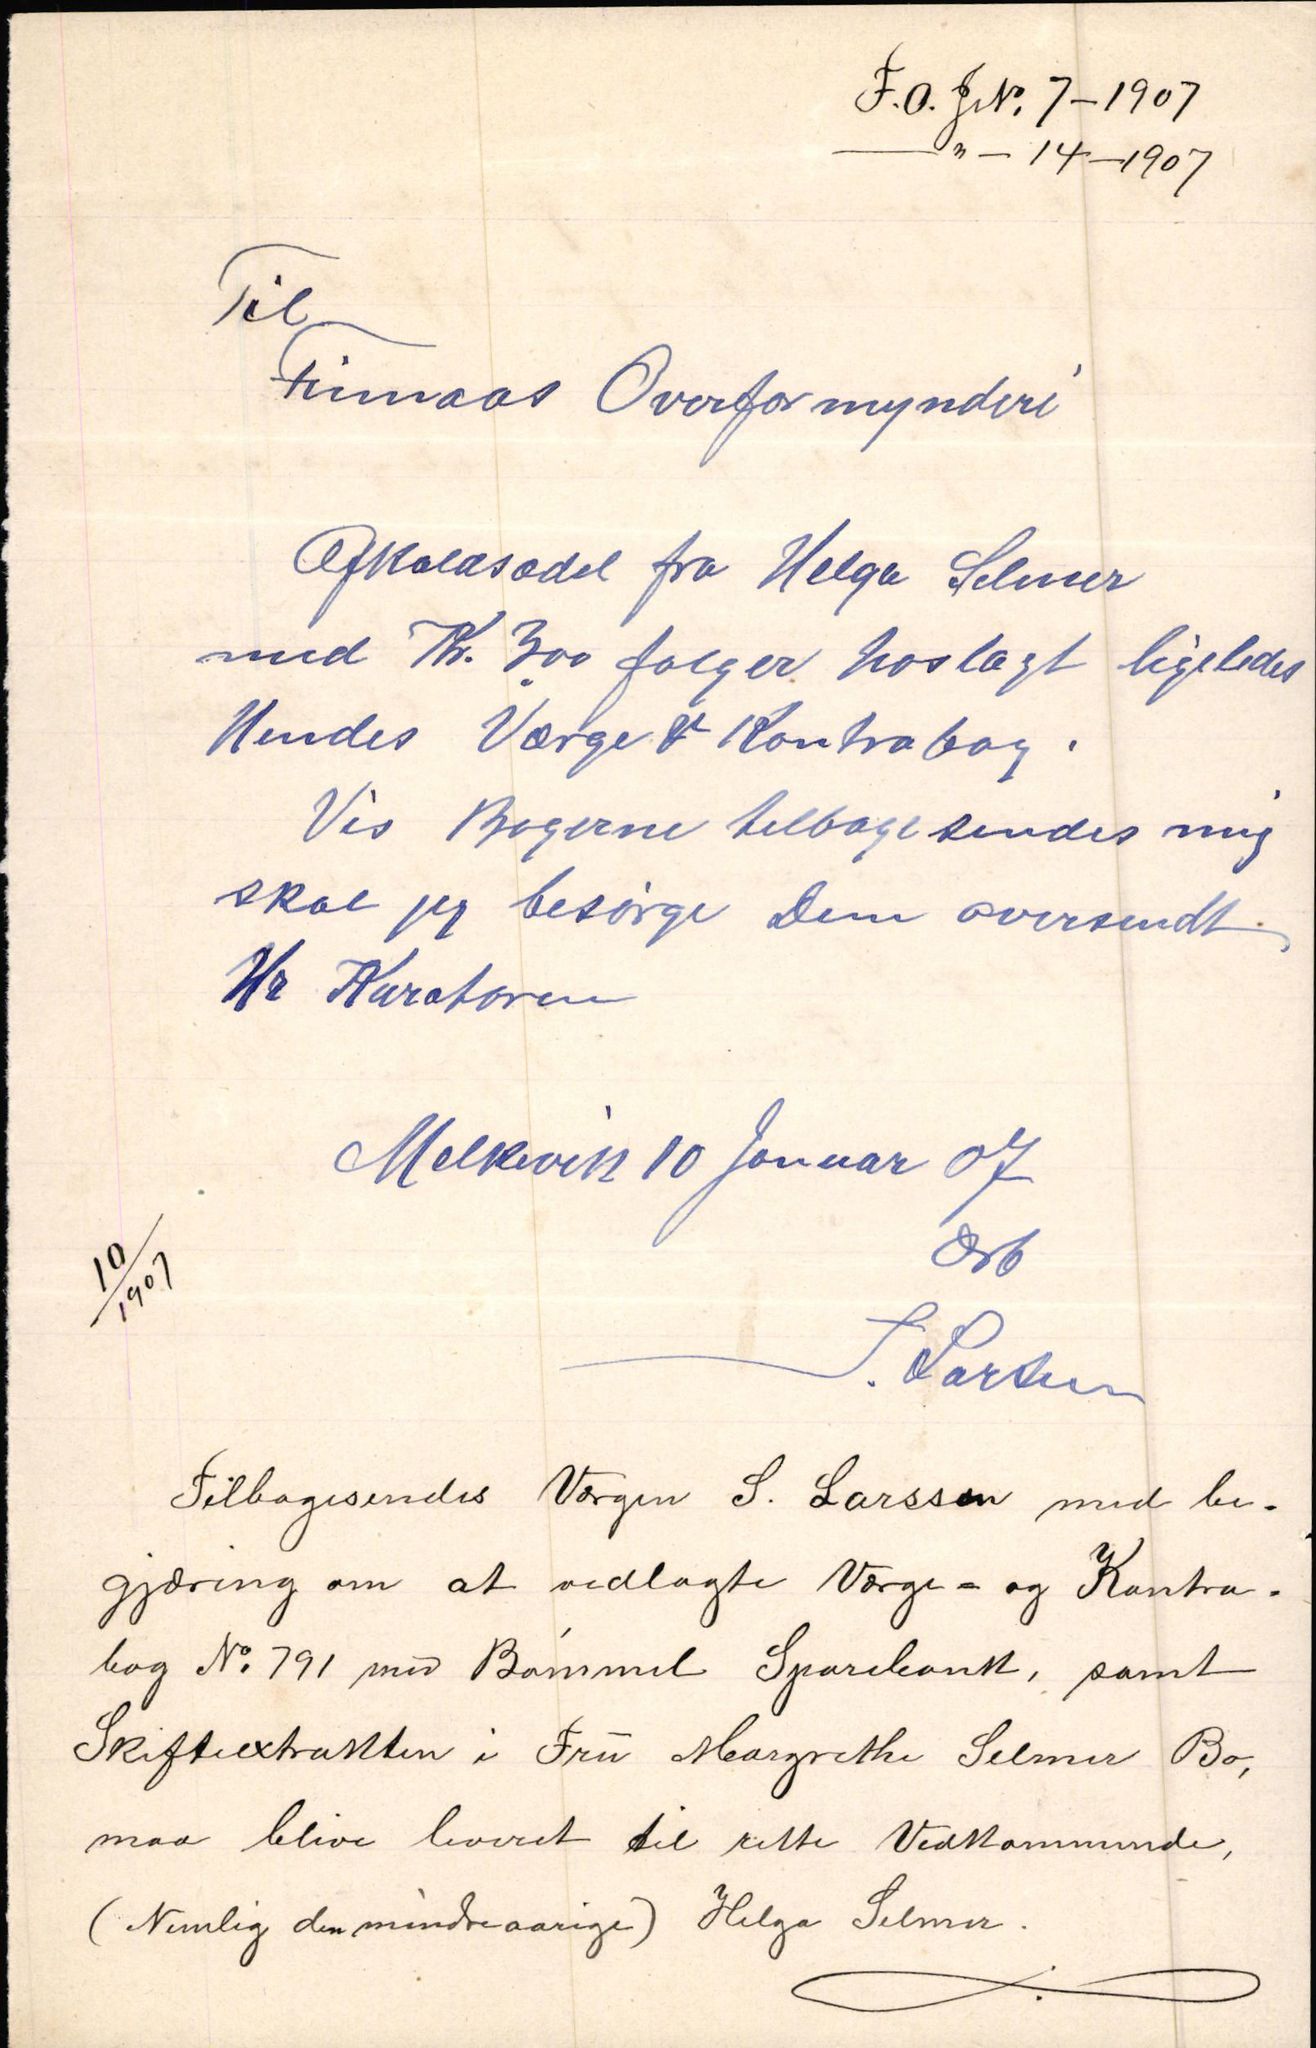 F.O. J.No. 7-1907
— " — 14-1907
Til
Finnaas Overformynderi
Afkaldsædel fra Helga Selmer
med Kr. 300 følger hoslagt ligeledes
Hendes Værge & Kontrabog.
Vis Bøgerne tilbagesendes mig
skal jeg besørge Dem oversendt
Hr Kuratoren
Melkevik 10 Januar 07
Ærb
S. Larsen
10/1907
Tilbagesendes Værgen S. Larssen med be-
gjæring om at vedlagte Værge- og Kontra-
bog No. 791 med Bømmel Sparebank, samt
Skifteextrakten i Frü Margrethe Selmer Bo,
maa blive leveret til rette Vedkommende,
(Nemlig den mindreaarige) Helga Selmer.